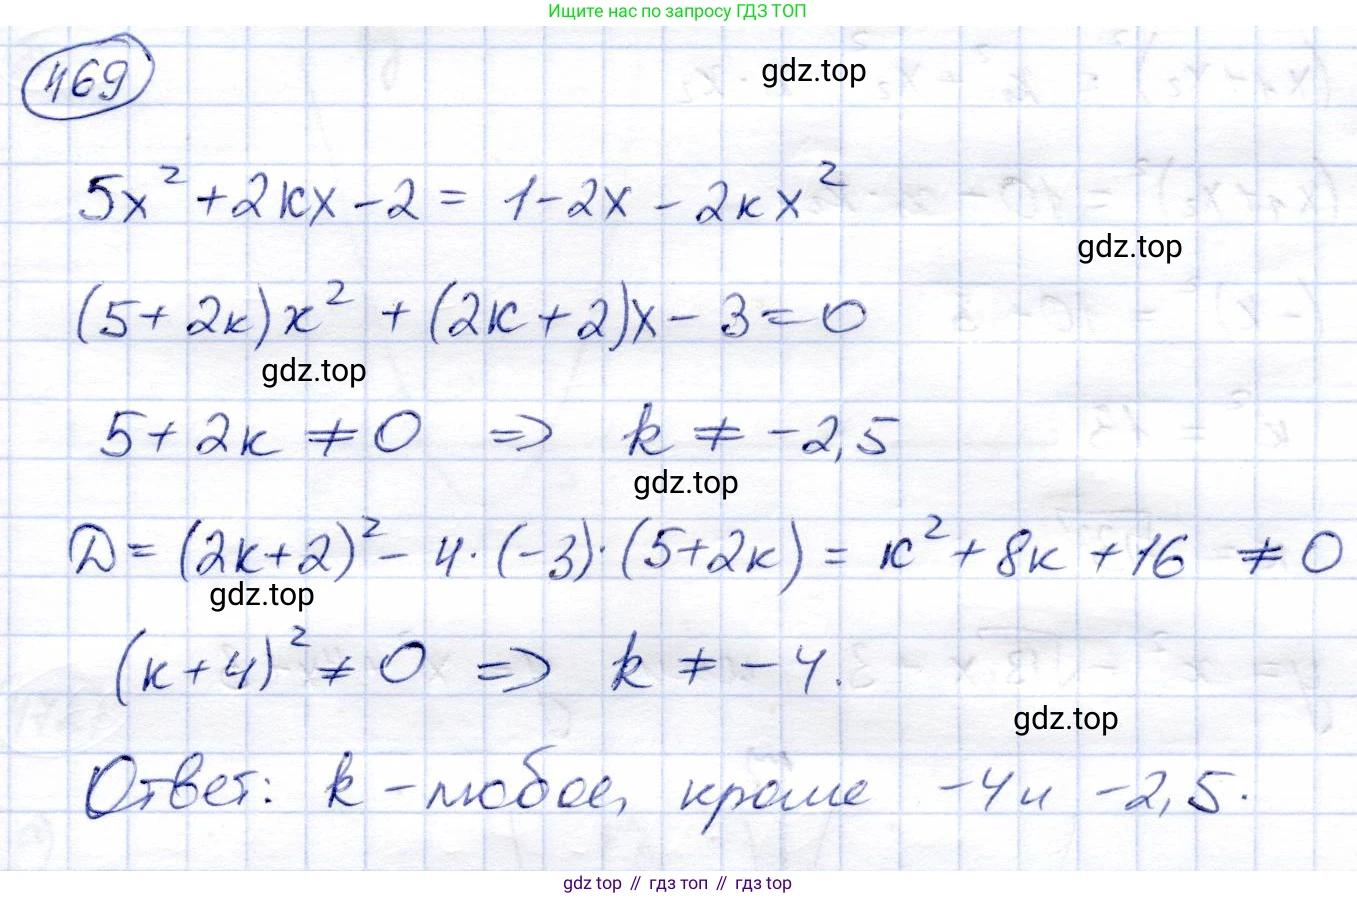 Ищите нас по запросу ГДЗ ТОП
469
gdz.top
5x² + 2kx - 2 = 1 - 2x - 2kx²
gdz.top
(5 + 2k)x² + (2k + 2)x - 3 = 0
gdz.top
5 + 2k ≠ 0 => k ≠ -2,5
gdz.top
D = (2k+2)² - 4·(-3)·(5+2k) = k² + 8k + 16 ≠ 0
gdz.top
(k+4)² ≠ 0 => k ≠ -4.
gdz.top
Ответ: k - любое, кроме -4 и -2,5.
gdz top // гдз топ // гдз top